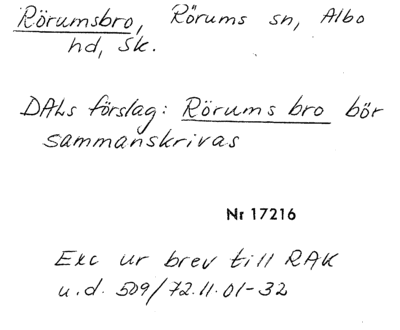 Rörumsbro, Rörums sn, Albo
hd, Sk.
DALs förslag: Rörums bro bör
sammanskrivas
Nr 17216
Exc ur brev till RAK
u.d. 509/72.11.01-32